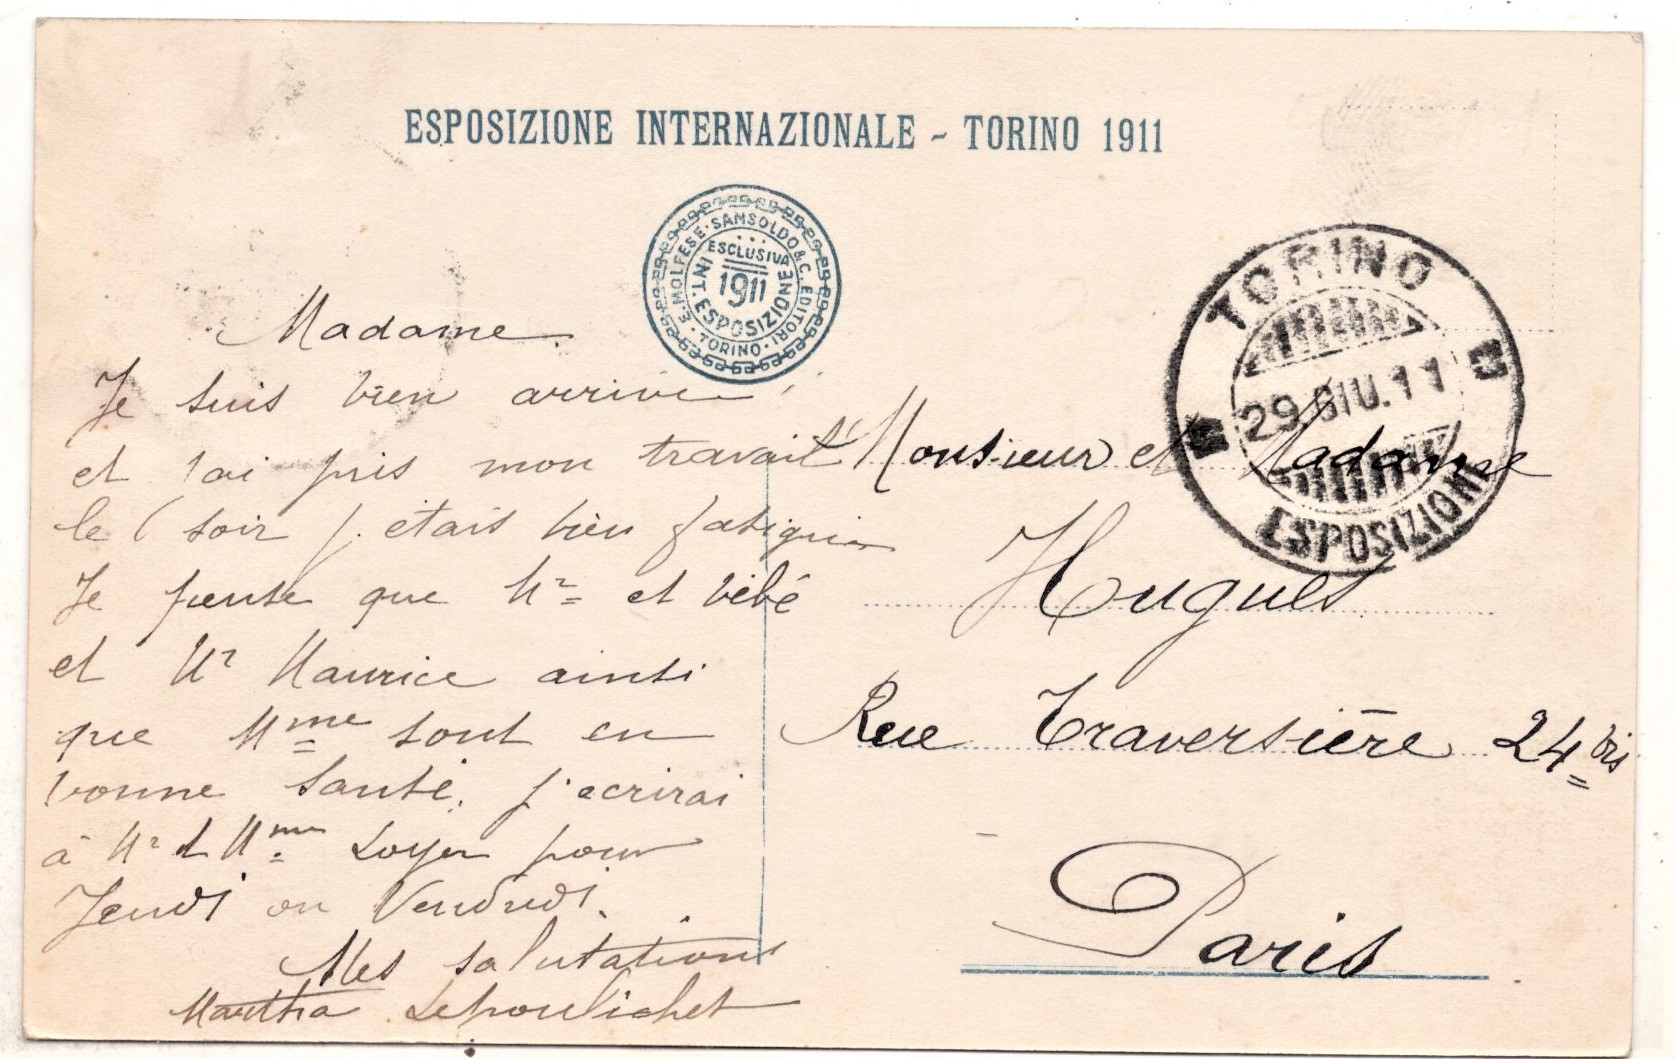 ESPOSIZIONE INTERNAZIONALE - TORINO 1911
E. MOLFESE · SAMSOLDO & C. EDITORI · TORINO ·
ESCLUSIVA
1911
INT. ESPOSIZIONE
TORINO
29.GIU.11
ESPOSIZIONE
Madame.
Je suis bien arrivée
et j'ai pris mon travail
le soir j. étais bien fatiguée
Je pense que Mr et bébé
et Mr Maurice ainsi
que Mme sont en
bonne santé. j'ecrirai
à Mr et Mme Loyer pour
Jeudi ou Vendredi.
Mes salutations
Martha Lepoulichet
Monsieur et Madame
Hugues
Rue Traversière 24 bis
Paris